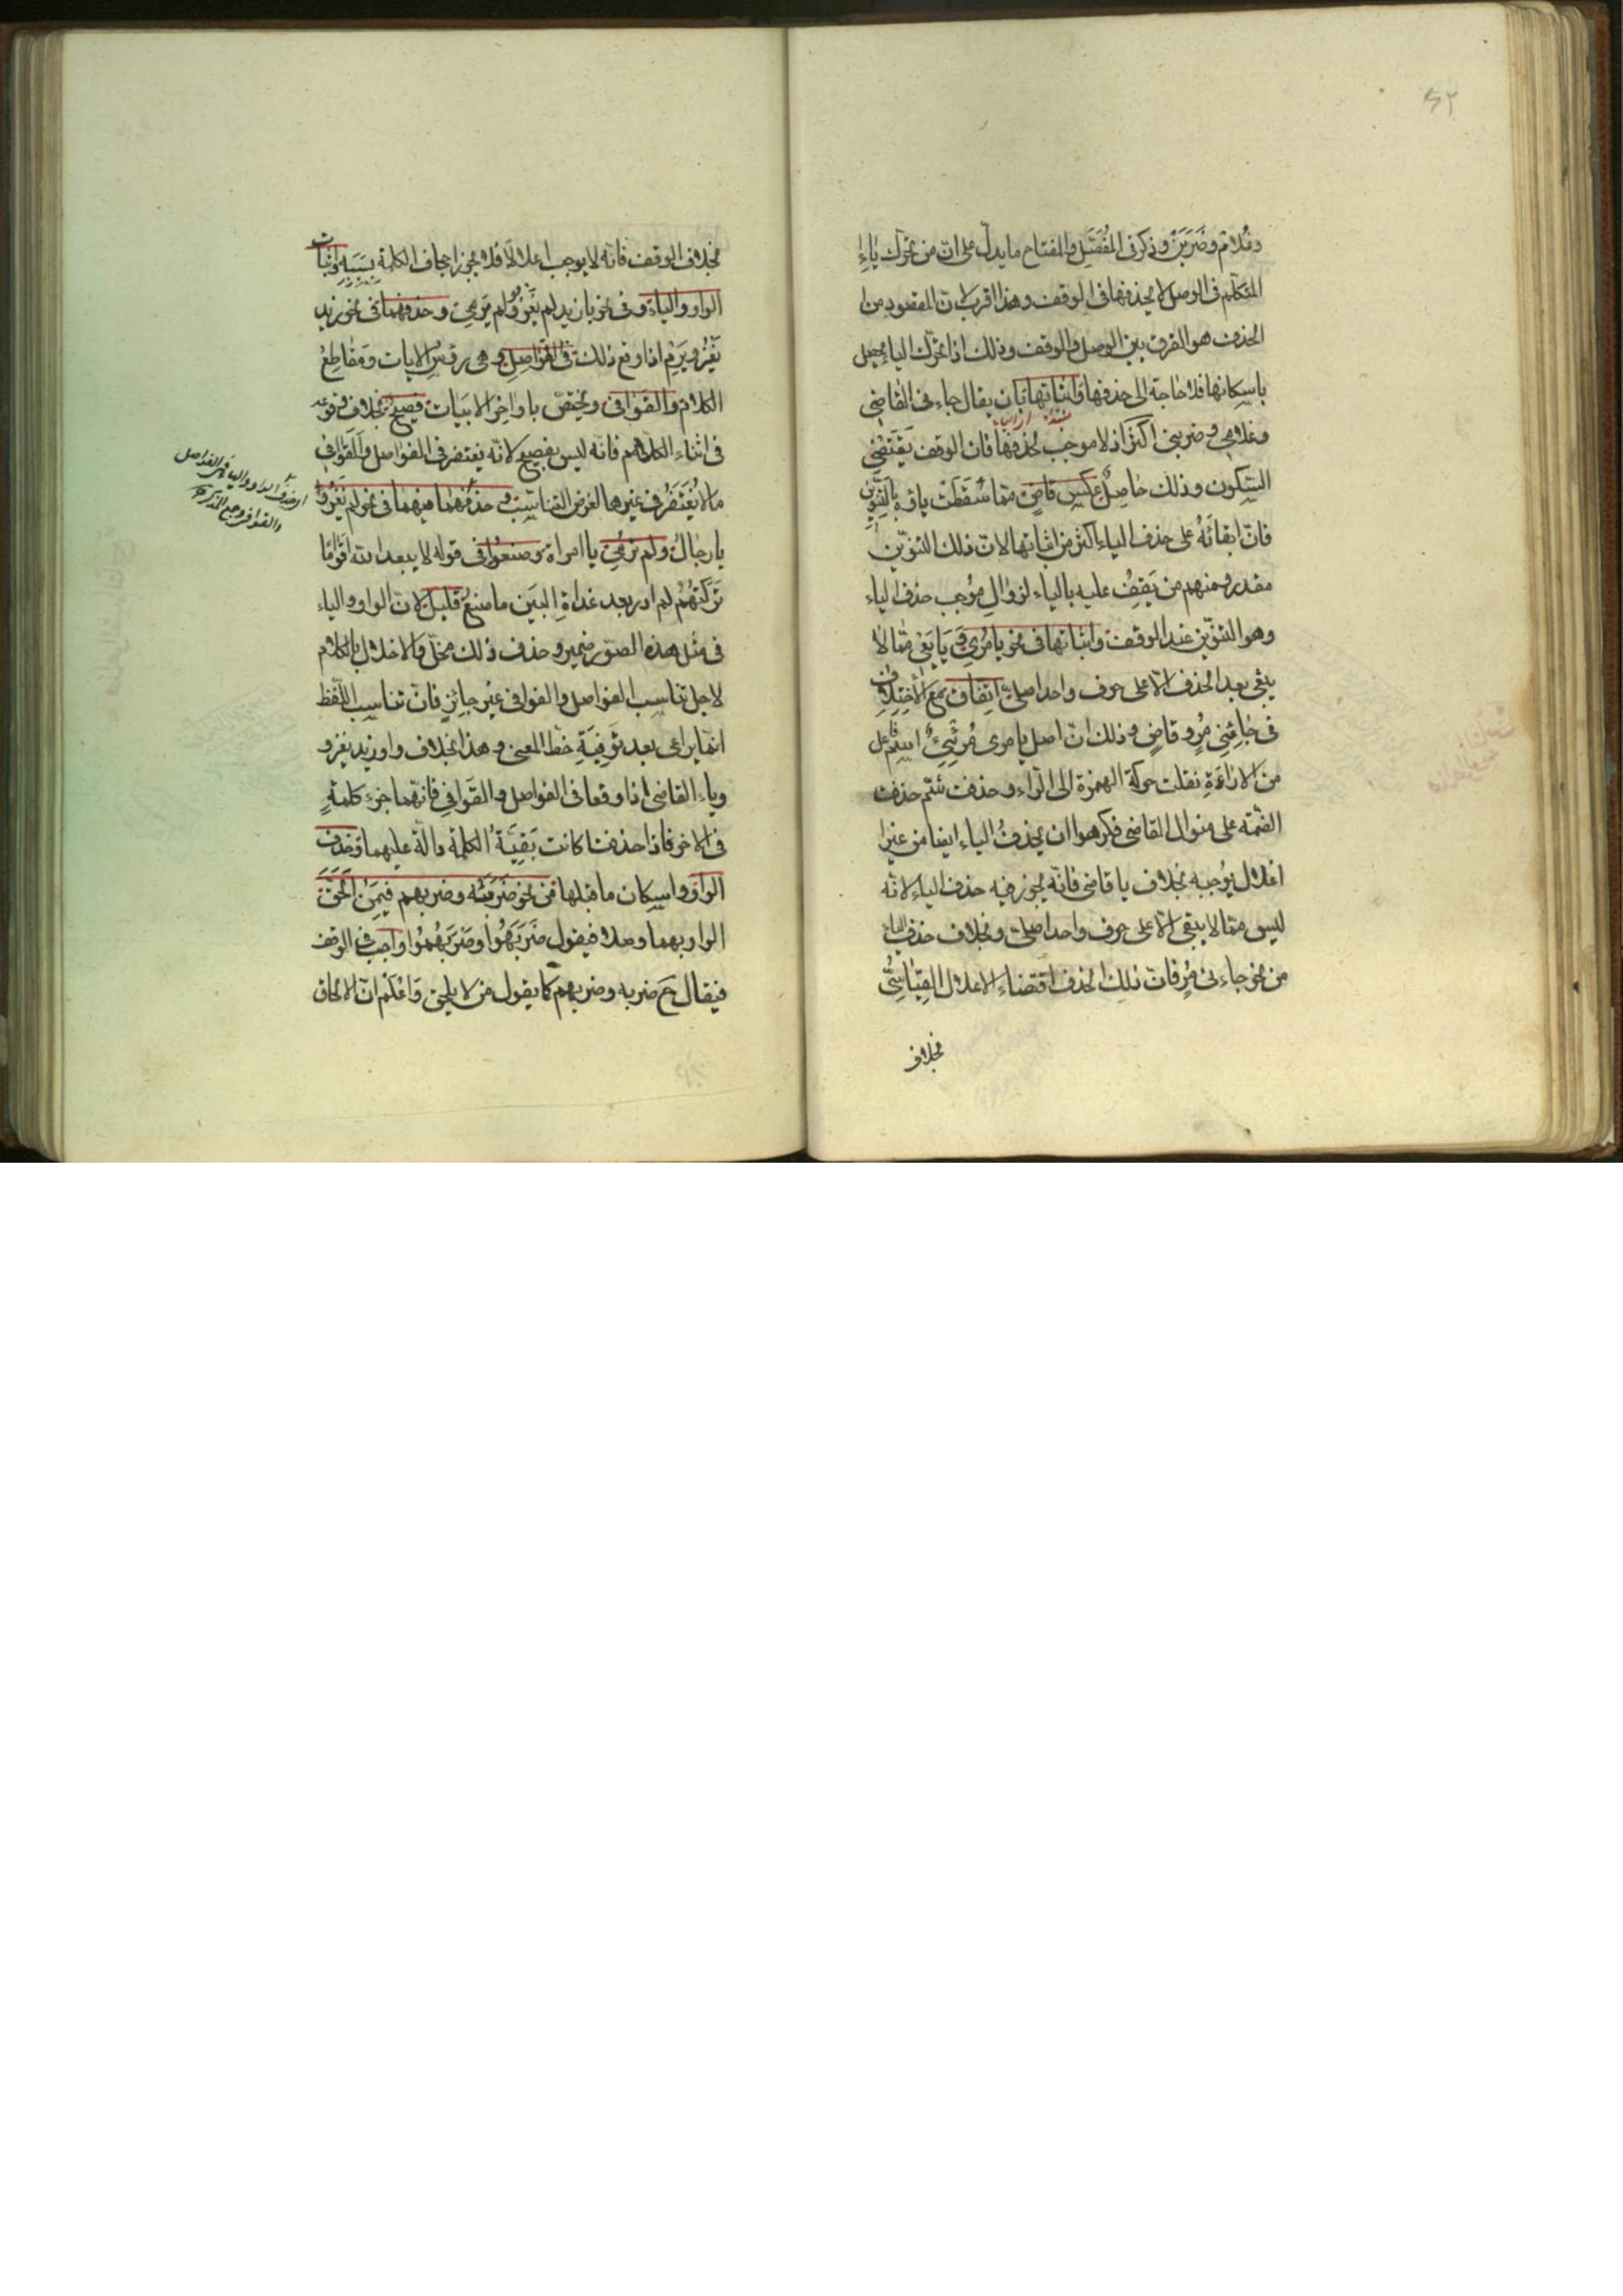 ٤٢
وغلام وضربن وذكر فى المفصّل والمفتاح ما يدلّ على انّ من يحرّك ياء
المتكلّم فى الوصل لا يحذفها فى الوقف وهذا اقرب لانّ المقصود من
الحذف هو الفرق بين الوصل والوقف وذلك اذا تحرّك الياء يحصل
باسكانها فلا حاجة الى حذفها واثباتها بان يقال جاءنى القاضى
وغلامى وضربنى اكثر اذ لا موجب لحذفها فانّ الوقف يقتضى
السّكون وذلك حاصل عكس قاض ممّا سقطت ياؤه بالتنوين
فانّ ابقائه على حذف الياء اكثر من اثباتها لانّ ذلك التنوين
مقدر ومنهم من يقف عليه بالياء لزوال موجب حذف الياء
وهو التنوين عند الوقف واثباتها فى نحو يا مرى ويا يفى ممّا لا
يبقى بعد الحذف الّا على حرف واحد اصلىّ اتفاق مع الاختلاف
فى جاءنى مر وقاض وذلك انّ اصل يا مرى مرئى اسم فاعل
من الاراءة نقلت حركة الهمزة الى الرّاء وحذفت ثمّ حذفت
الضمّة على منوال القاضى فكرهوا ان يحذف الياء ايضا من غير
اعلال يوجبه بخلاف يا قاضى فانّه يجوز فيه حذف الياء لانّه
ليس ممّا لا يبقى الّا على حرف واحد اصلىّ وبخلاف حذف الياء
من نحو جاءنى مر فانّ ذلك الحذف اقتضاء الاعلال القياسىّ
بخلاف
بخلاف الوقف فانّه لا يوجب اعلالا فلا يجوز اجحاف الكلمة بسببه واثبات
الواو والياء وفى نحو يا زيد لم يغزو ولم يرمى وحذفهما فى نحو زيد
يغزو ويرم اذا وقع ذلك فى الفواصل وهى رؤس الايات ومقاطع
الكلام والقوافى ويختصّ باواخر الابيات فصيح بخلاف وقوعه
فى اثناء الكلام فانّه ليس بفصيح لانّه يغتفر فى الفواصل والقوافى
ما لا يغتفر فى غيرها لغرض التناسب وحذفهما فيهما فى نحو لم يغزوا
يا رجال ولم ترمى يا امراة وصنعوا فى قوله لا يبعد الله اقواما
تركتهم لم ادر بعد غداة البين ما صنع قليل لانّ الواو والياء
فى مثل هذه الصّور ضمير وحذف ذلك مخلّ والاخلال بالكلام
لاجل تناسب الفواصل والقوافى غير جائز فانّ تناسب اللّفظ
انّما يراعى بعد توفية حظ المعنى وهذا بخلاف واو زيد يغزو
وياء القاضى اذا وقعا فى الفواصل والقوافى فانّهما جزء كلمة
فى الاخر فاذا حذفتا كانت بقيّة الكلمة دالّة عليهما وحذف
الواو واسكان ما قبلها من نحو ضربته وضربهم فيمن الحق
الواو بهما وصلا فيقول ضربهوا وضربهموا واجب فى الوقف
فيقال ح ضربه وضربهم كما يقول من لا يلحق واعلم انّ الالحاق
والياء فى الفواصل